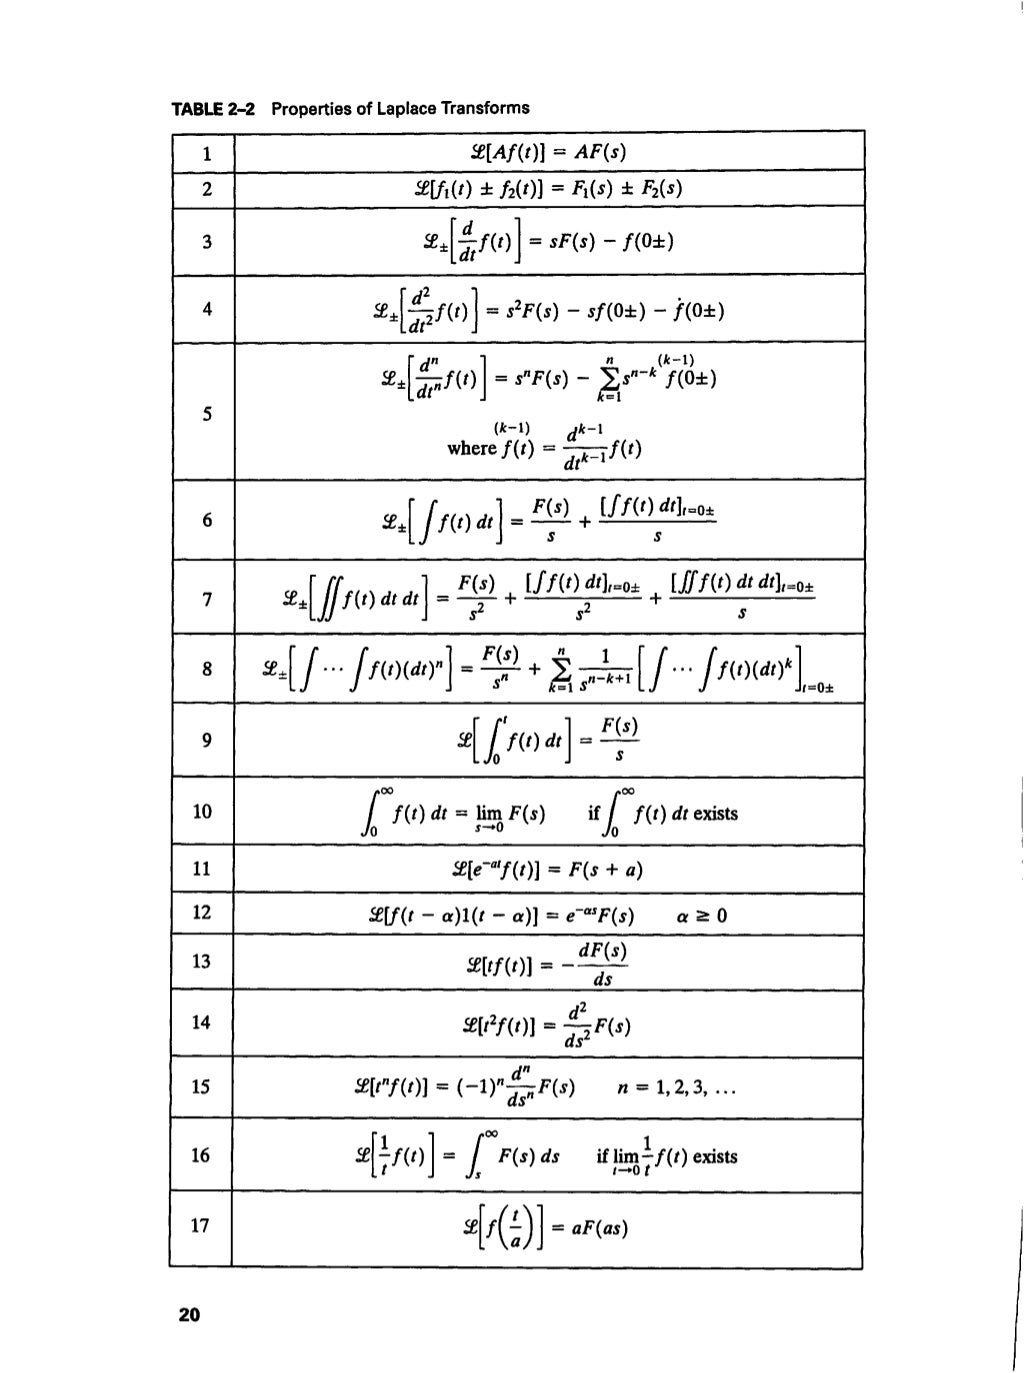 TABLE 2–2 Properties of Laplace Transforms
1 ℒ[Af(t)] = AF(s)
2 ℒ[f₁(t) ± f₂(t)] = F₁(s) ± F₂(s)
3 ℒ±[d/dt f(t)] = sF(s) − f(0±)
4 ℒ±[d²/dt² f(t)] = s²F(s) − sf(0±) − ḟ(0±)
5 ℒ±[dⁿ/dtⁿ f(t)] = sⁿF(s) − ∑_{k=1}^{n} s^{n−k} f^{(k−1)}(0±)
where f^{(k−1)}(t) = d^{k−1}/dt^{k−1} f(t)
6 ℒ±[∫ f(t) dt] = F(s)/s + [∫ f(t) dt]_{t=0±}/s
7 ℒ±[∬ f(t) dt dt] = F(s)/s² + [∫ f(t) dt]_{t=0±}/s² + [∬ f(t) dt dt]_{t=0±}/s
8 ℒ±[∫ ··· ∫ f(t)(dt)ⁿ] = F(s)/sⁿ + ∑_{k=1}^{n} 1/s^{n−k+1} [∫ ··· ∫ f(t)(dt)^k]_{t=0±}
9 ℒ[∫_0^t f(t) dt] = F(s)/s
10 ∫_0^∞ f(t) dt = lim_{s→0} F(s) if ∫_0^∞ f(t) dt exists
11 ℒ[e^{−at} f(t)] = F(s + a)
12 ℒ[f(t − α)1(t − α)] = e^{−αs}F(s) α ≥ 0
13 ℒ[tf(t)] = −dF(s)/ds
14 ℒ[t²f(t)] = d²/ds² F(s)
15 ℒ[tⁿf(t)] = (−1)ⁿ dⁿ/dsⁿ F(s) n = 1, 2, 3, ...
16 ℒ[1/t f(t)] = ∫_s^∞ F(s) ds if lim_{t→0} 1/t f(t) exists
17 ℒ[f(t/a)] = aF(as)
20